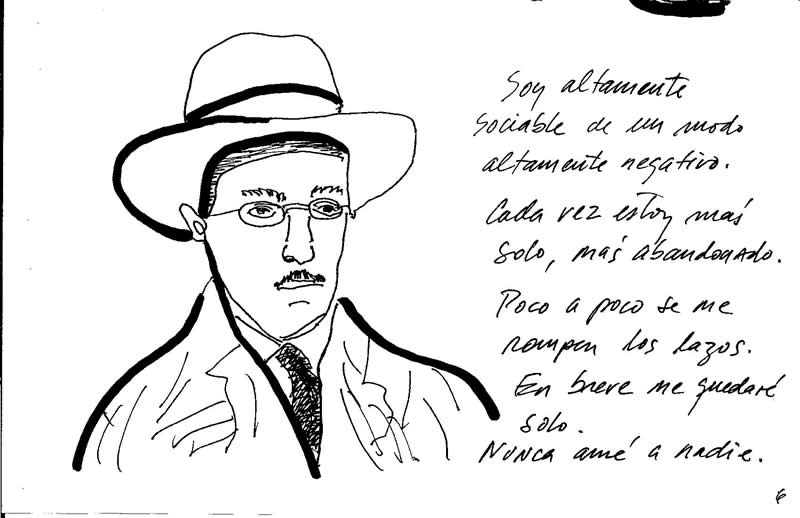 Soy altamente
sociable de un modo
altamente negativo.
Cada vez estoy más
solo, más abandonado.
Poco a poco se me
rompen los lazos.
En breve me quedaré
solo.
Nunca amé a nadie.
6